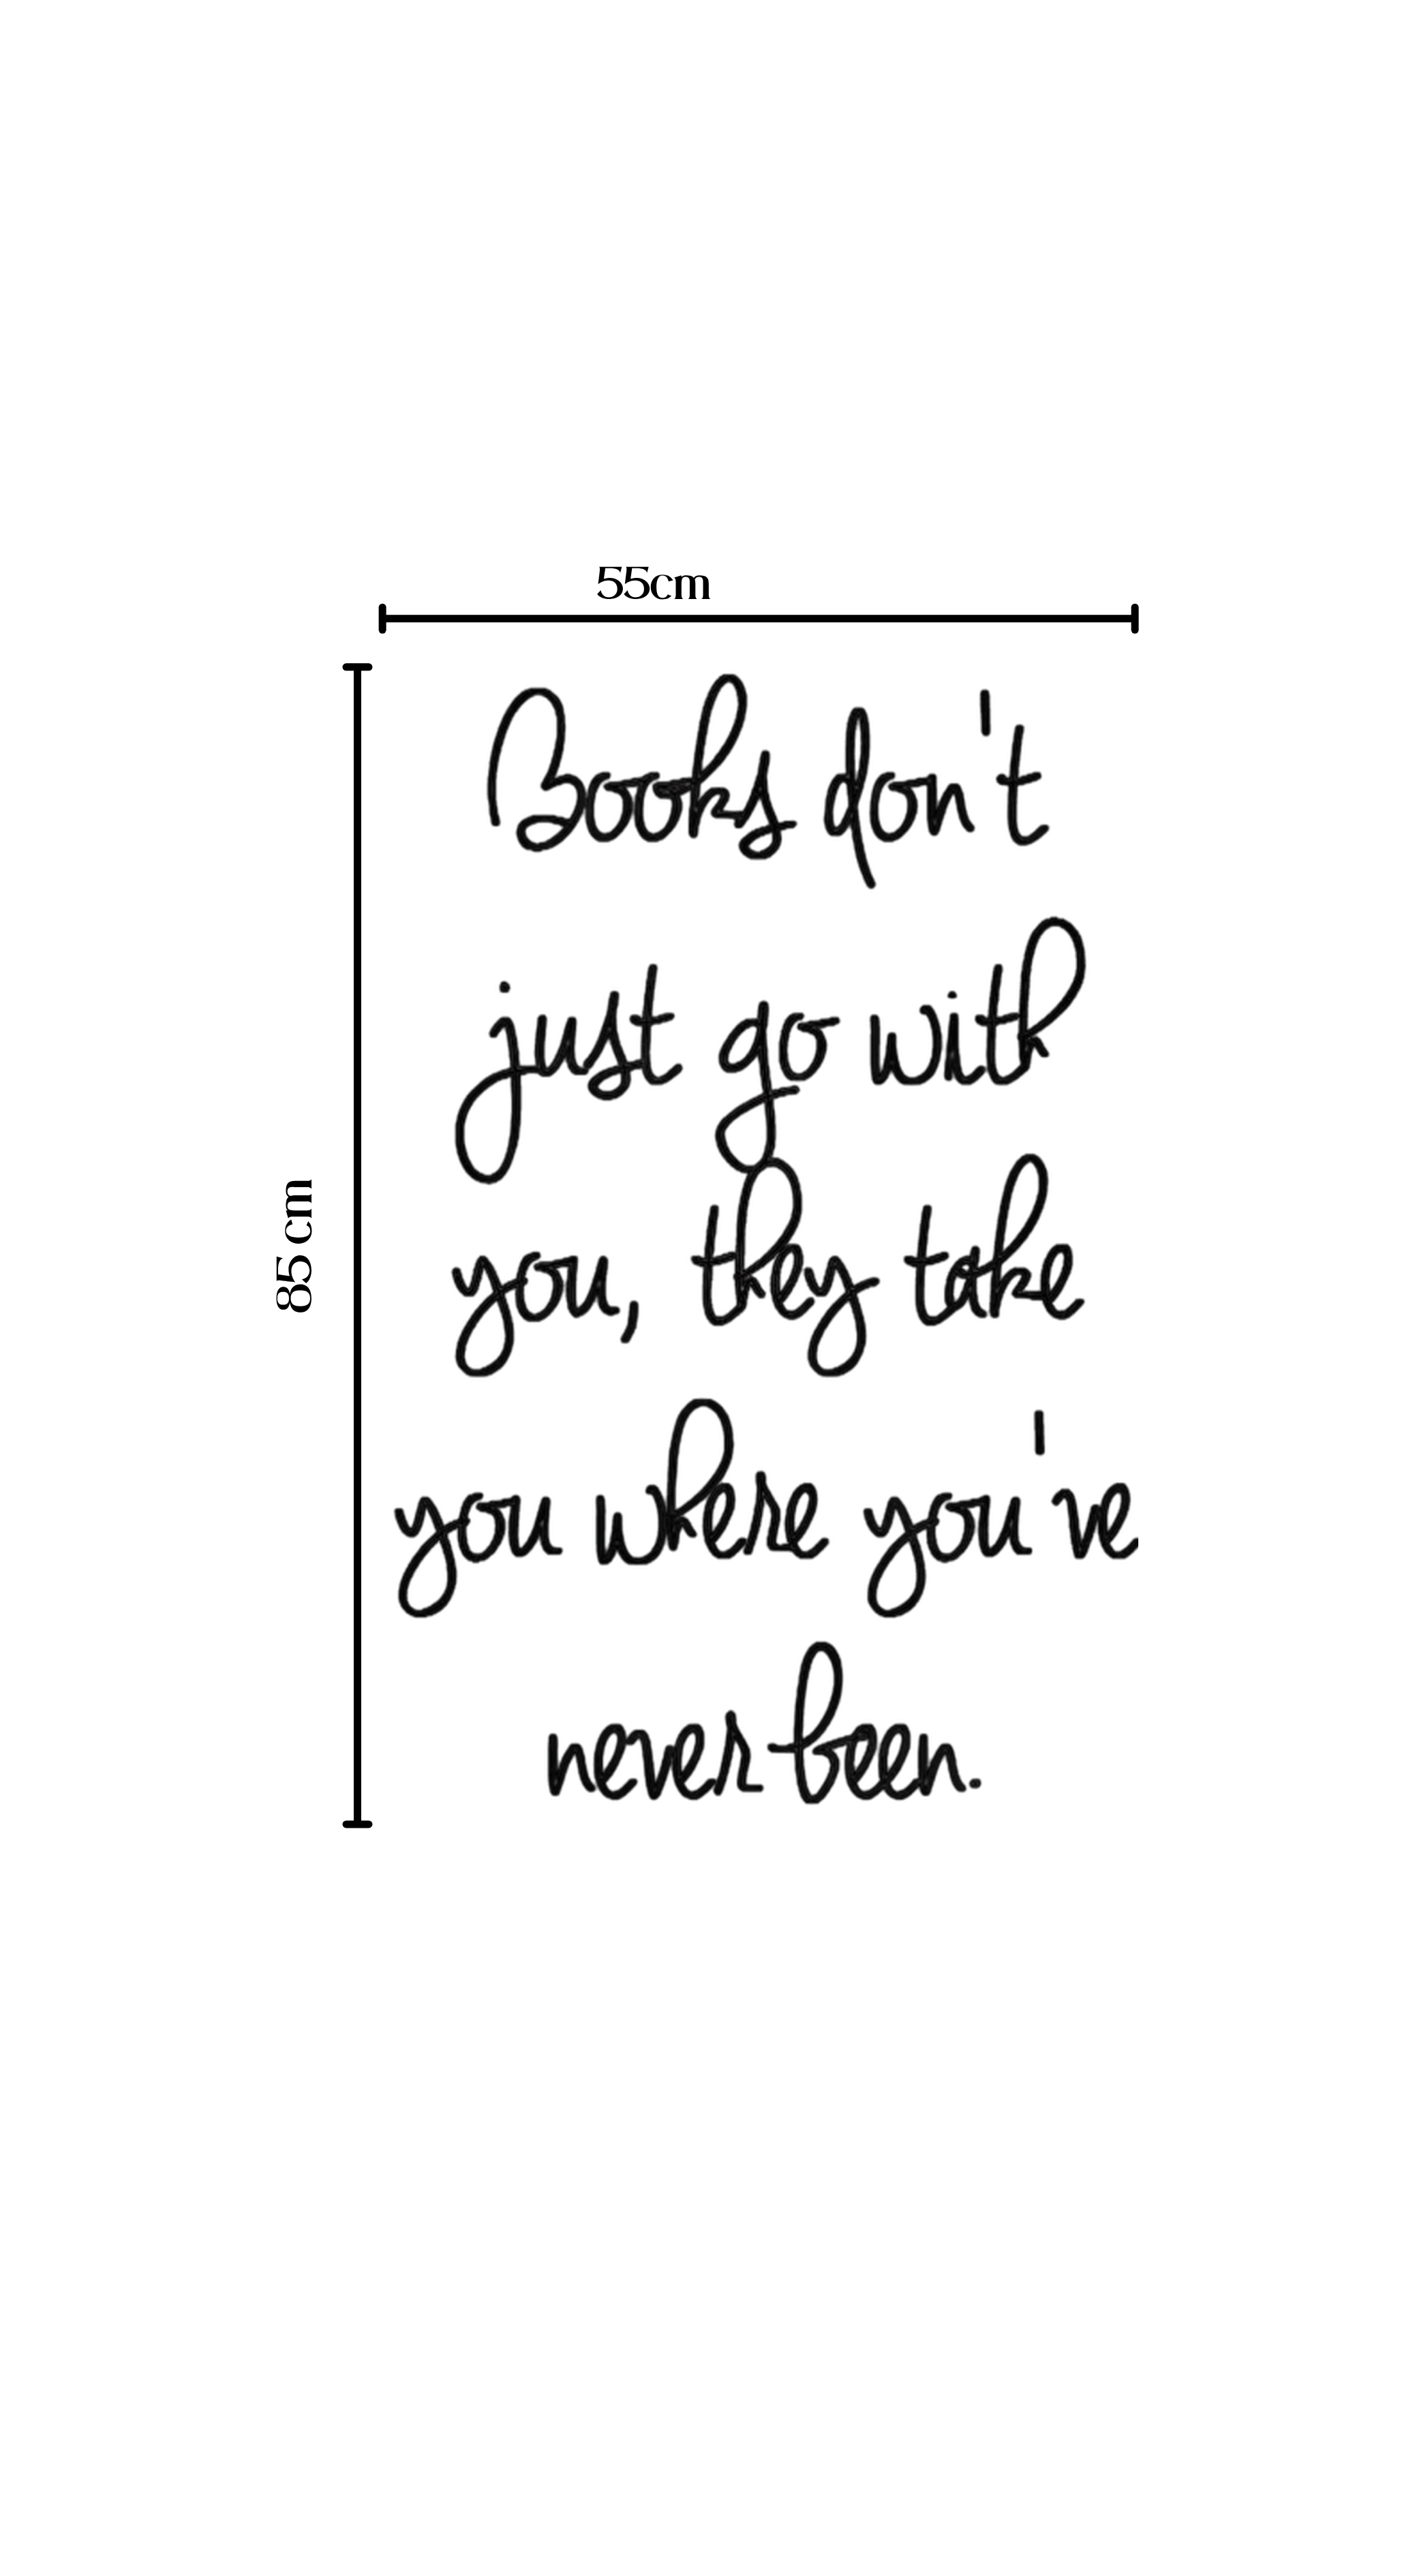 55cm
85 cm
Books don't
just go with
you, they take
you where you've
never been.